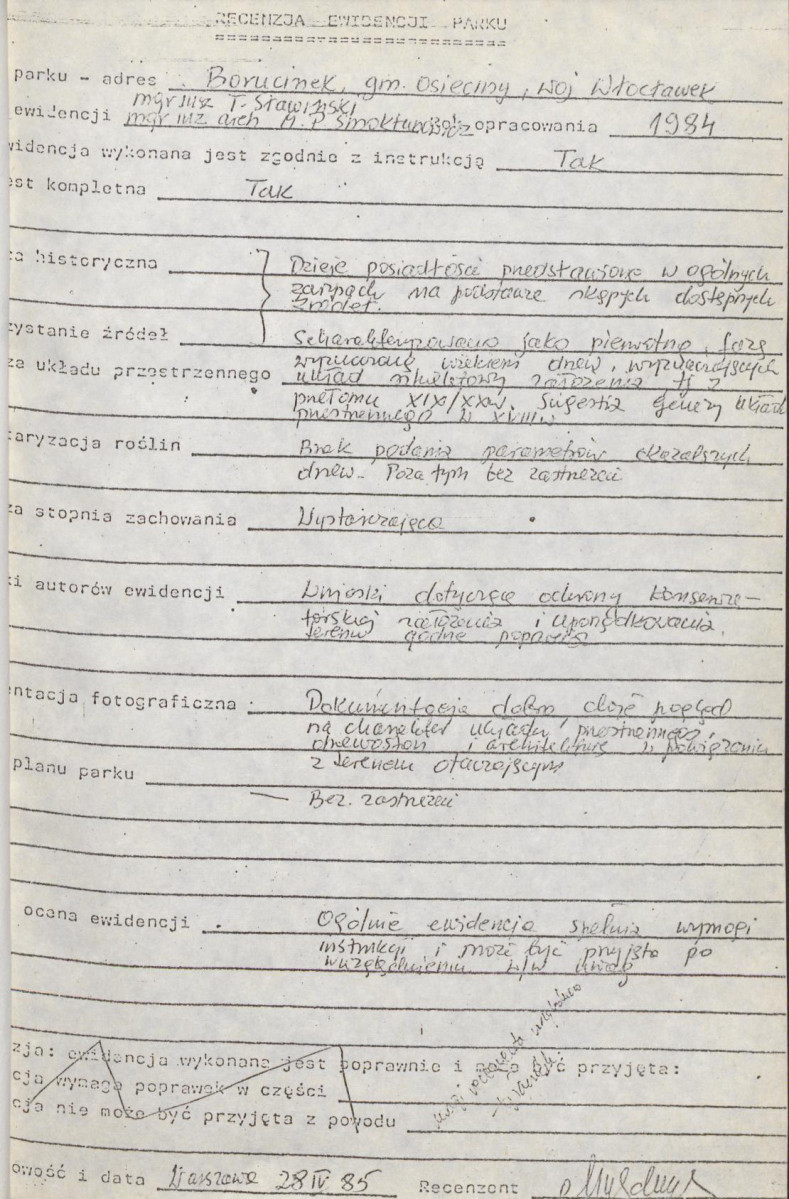 RECENZJA EWIDENCJI PARKU
parku - adres . Borucinek, gm. Osięciny, woj Włocławek
mgr inż T. Sławiński
ewidencji mgr inż arch M. P. Smoktunowicz opracowania 1984
widencja wykonana jest zgodnie z instrukcją Tak
est kompletna Tak
za historyczna Dzieje posiadłości przedstawione w ogólnych
zarysach na podstawie skąpych dostępnych
źródeł.
zystanie źródeł Scharakteryzowano jako pierwotną, fazę
za układu przestrzennego wiekiem drzew, wyznaczających
układ szkieletowy założenia tj z
przełomu XIX/XX w. Sugestia genezy układu
przestrzennego w XVIII w
taryzacja roślin Brak podania parametrów okazalszych
drzew. Poza tym bez zastrzeżeń
za stopnia zachowania Wystarczająca
ki autorów ewidencji Wnioski dotyczące ochrony konserwa-
torskiej założenia i uporządkowania
terenu godne poparcia
entacja fotograficzna . Dokumentacja dobra daje pogląd
na charakter układu przestrzennego,
drzewostan i architekturę w powiązaniu
z terenem otaczającym
planu parku
— Bez. zastrzeżeń
ocena ewidencji . Ogólnie ewidencja spełnia wymogi
instrukcji i może być przyjęta po
uwzględnieniu w/w uwag
zja: ewidencja wykonana jest poprawnie i może być przyjęta:
cja wymaga poprawek w części
cja nie może być przyjęta z powodu
owość i data Warszawa 28 IV 85 Recenzent